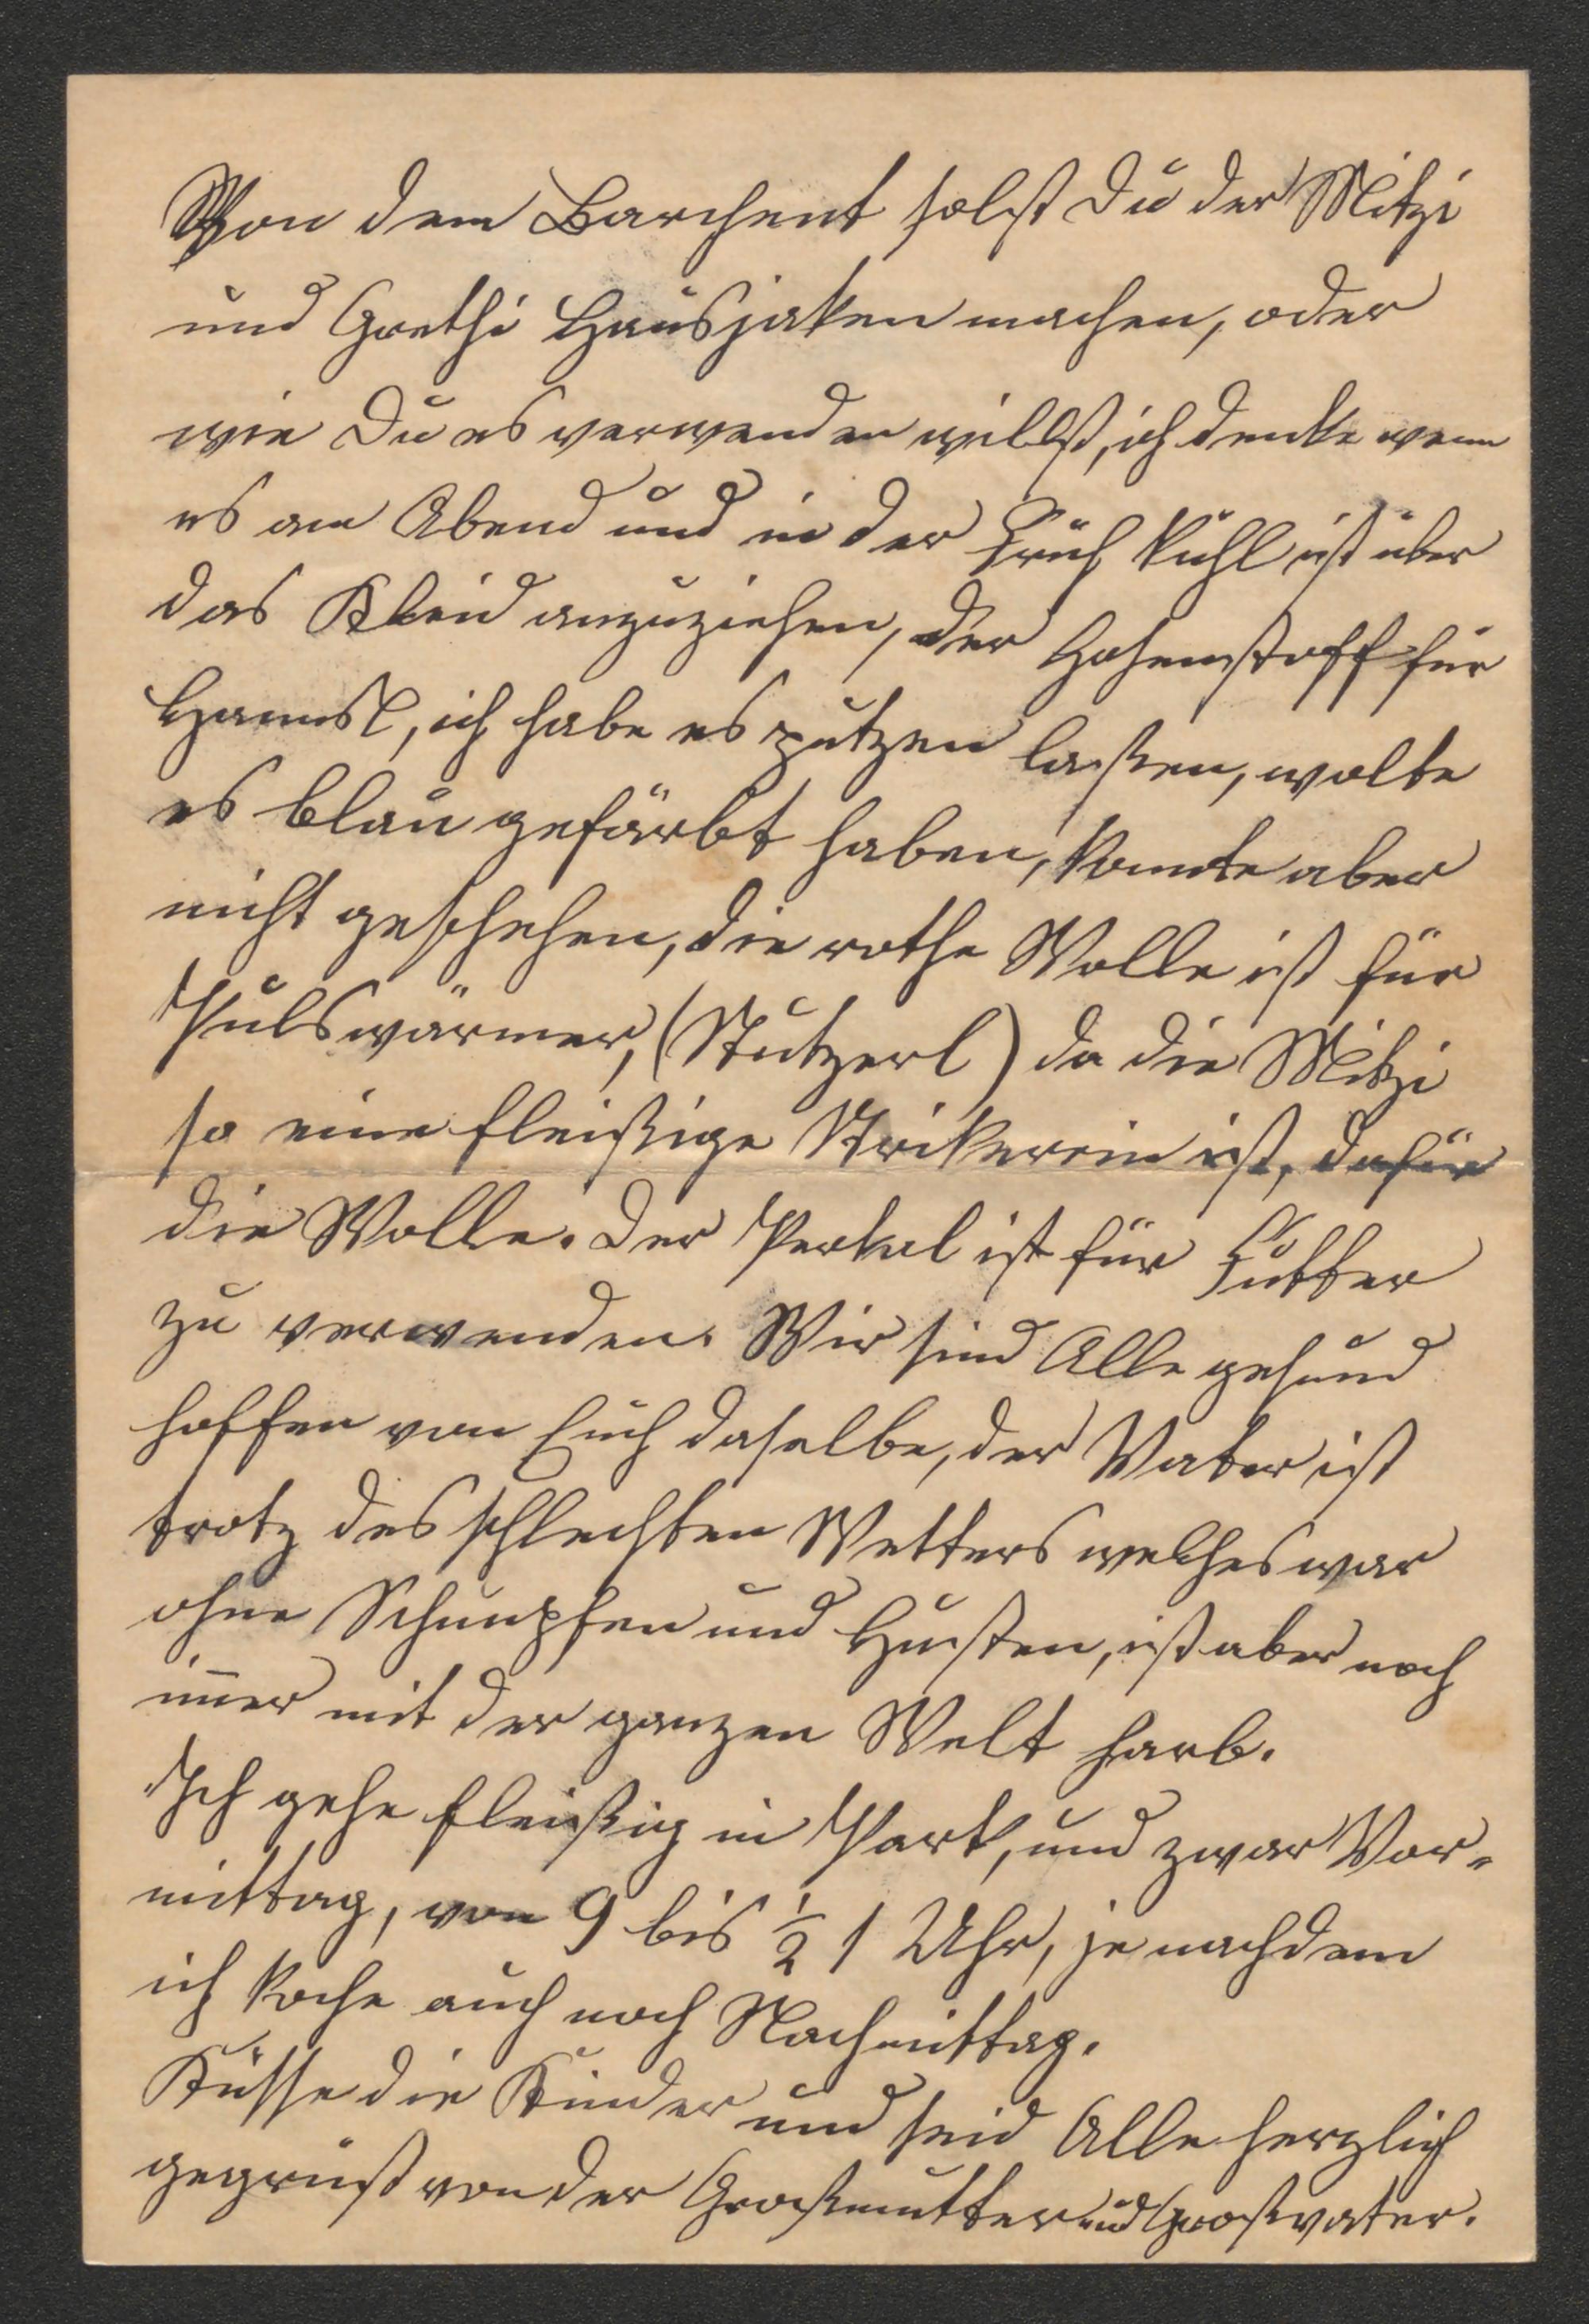 Von dem Barchent solst Du der Mitzi
und Grethi Hausjaken machen, oder
wie Du es verwenden willst, ich denke wenn
es am Abend und in der Früh kühl ist über
das Kleid anzuziehen, der Hosenstoff für
Hannsl, ich habe es putzen laßen, wolte
es blau gefärbt haben, konnte aber
nicht geschehen, die rothe Wolle ist für
Pulswärmer, (Stutzerl) da die Mitzi
so eine fleißige Strikerein ist, dafür
die Wolle. Der Perkal ist für Futter
zu verwenden. Wir sind Alle gesund
hoffen von Euch daselbe, der Vater ist
trotz des schlechten Wetters welches war
ohne Schnupfen und Husten, ist aber noch
im̄er mit der ganzen Welt harb.
Ich gehe fleißig in Park, und zwar Vor-
mittag, von 9 bis ½ 1 Uhr, je nachdem
ich koche auch noch Nachmittag.
Küsse die Kinder und seid Alle herzlich
gegrüßt von der Großmutter und Großvater.